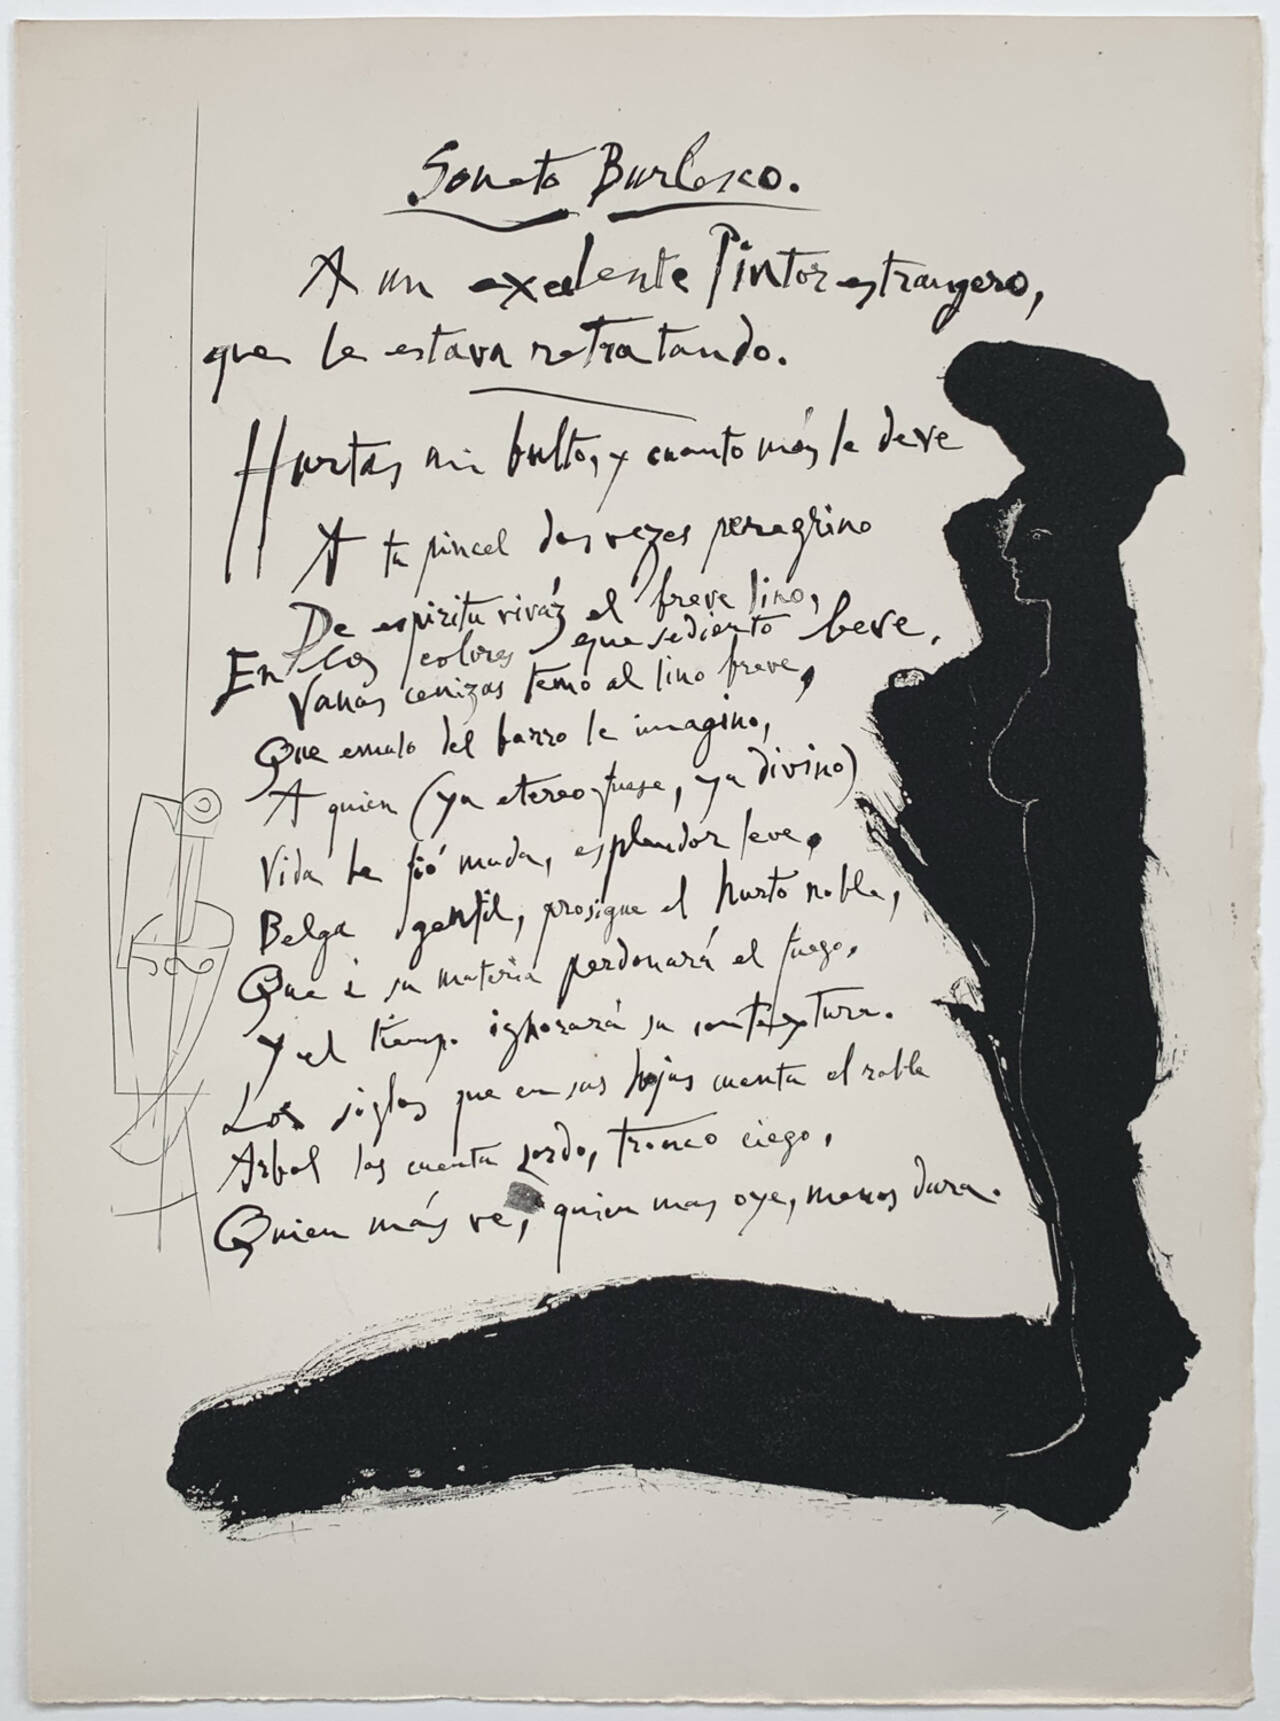 Soneto Burlesco.
A un excelente Pintor estrangero,
que le estava retratando.
Hurtas mi bulto, y cuanto más le deve
A tu pincel dos vezes peregrino
De espiritu viváz el breve lino,
En los colores que sediento beve,
Vanas cenizas temo al lino breve,
Que emulo del barro le imagino,
A quien (ya etereo fuese, ya divino)
Vida le fió muda, esplendor leve,
Belga gentil, prosigue el hurto noble,
Que á su materia perdonará el fuego,
Y el tiempo ignorará su contextura.
Los siglos que en sus hojas cuenta el roble
Arbol los cuenta sordo, tronco ciego,
Quien más ve, quien mas oye, menos dura.